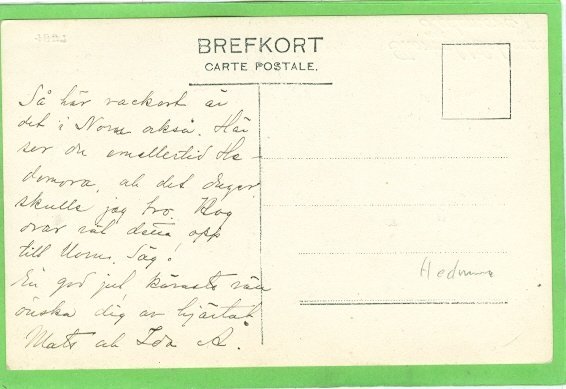 BREFKORT
CARTE POSTALE.
Så här vackert är
det i Norn också. Här
ser du emellertid He-
demora, och det duger
skulle jag tro. Kog
väl detta opp
till Norn. Säg!
En god jul, käraste
önska dig av hjärtat
Mats och Ida Å.